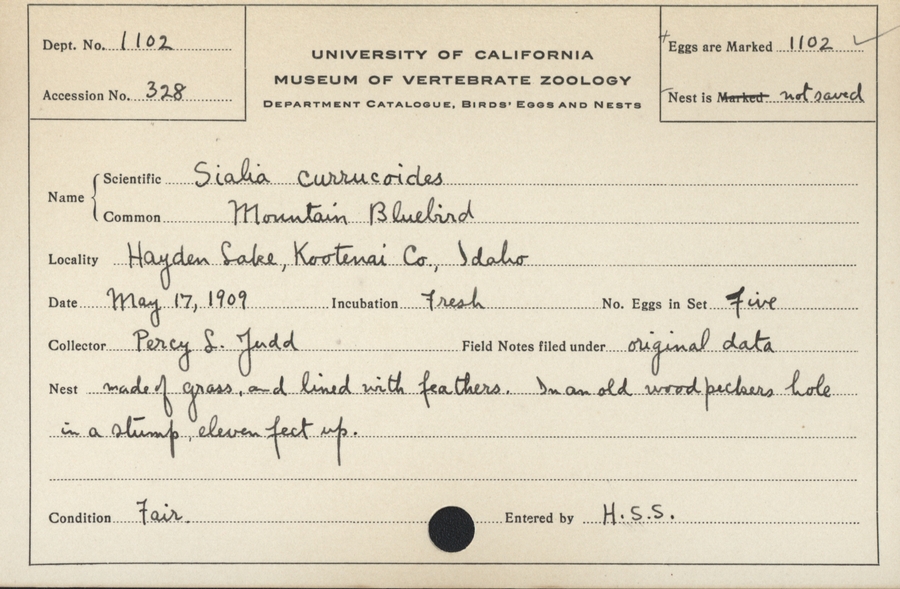 Dept. No. 1102
Accession No. 328
UNIVERSITY OF CALIFORNIA
MUSEUM OF VERTEBRATE ZOOLOGY
DEPARTMENT CATALOGUE, BIRDS' EGGS AND NESTS
Eggs are Marked 1102
Nest is Marked not saved
Name
Scientific Sialia currucoides
Common Mountain Bluebird
Locality Hayden Lake, Kootenai Co., Idaho
Date May 17, 1909 Incubation Fresh No. Eggs in Set Five
Collector Percy L. Judd Field Notes filed under original data
Nest made of grass, and lined with feathers. In an old woodpeckers hole
in a stump, eleven feet up.
Condition Fair. Entered by H.S.S.